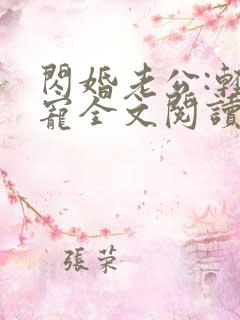 閃婚老公:漸
寵全文閱讀
張荣